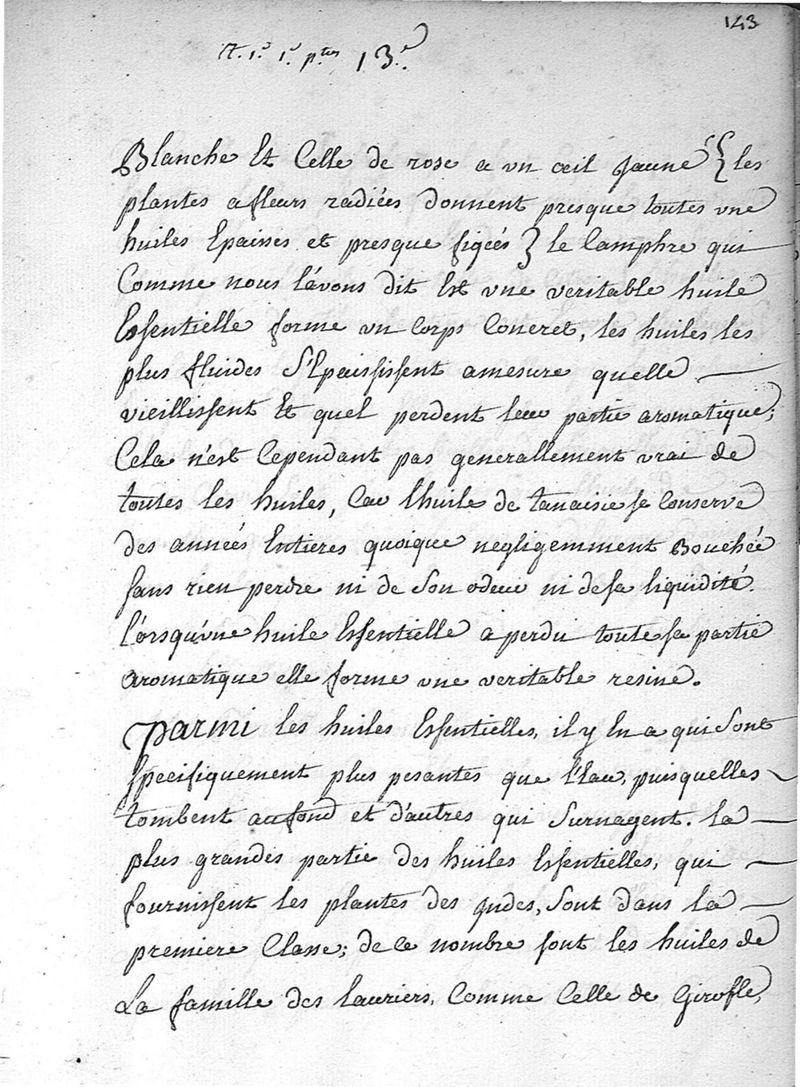 143
1.º 1.º p.tie 13.e
Blanche Et Celle de rose a vn œil jauné } les
plantes a fleurs radiées donnent presque toutes vne
huiles Epaisses et presque figées } le Camphre qui
Comme nous l'avons dit Est vne veritable huile
Essentielle forme vn Corps Concret, les huiles les
plus fluides S'Epaississent amesure quelle
vieillissent Et quel perdent leur partie aromatique;
Cela n'est Cependant pas generallement vrai de
toutes les huiles, Car l'huile de tanaisie se Conserve
des années Entieres quoique negligemment Bouchée
sans rien perdre ni de Son odeur ni desa liquidité.
l'orsqu'vne huile Essentielle a perdu toute sa partie
aromatique elle forme vne veritable resine.
parmi les huiles Essentielles, il y En a qui Sont
specifiquement plus pesantes que l'Eau, puisquelles
tombent aufond et d'autres qui Surnagent. la
plus grandes partie des huiles Essentielles, qui
fournissent les plantes des jndes, Sont dans la
premiere Classe; de Ce nombre sont les huiles de
La famille des lauriers, Comme Celle de Girofle,